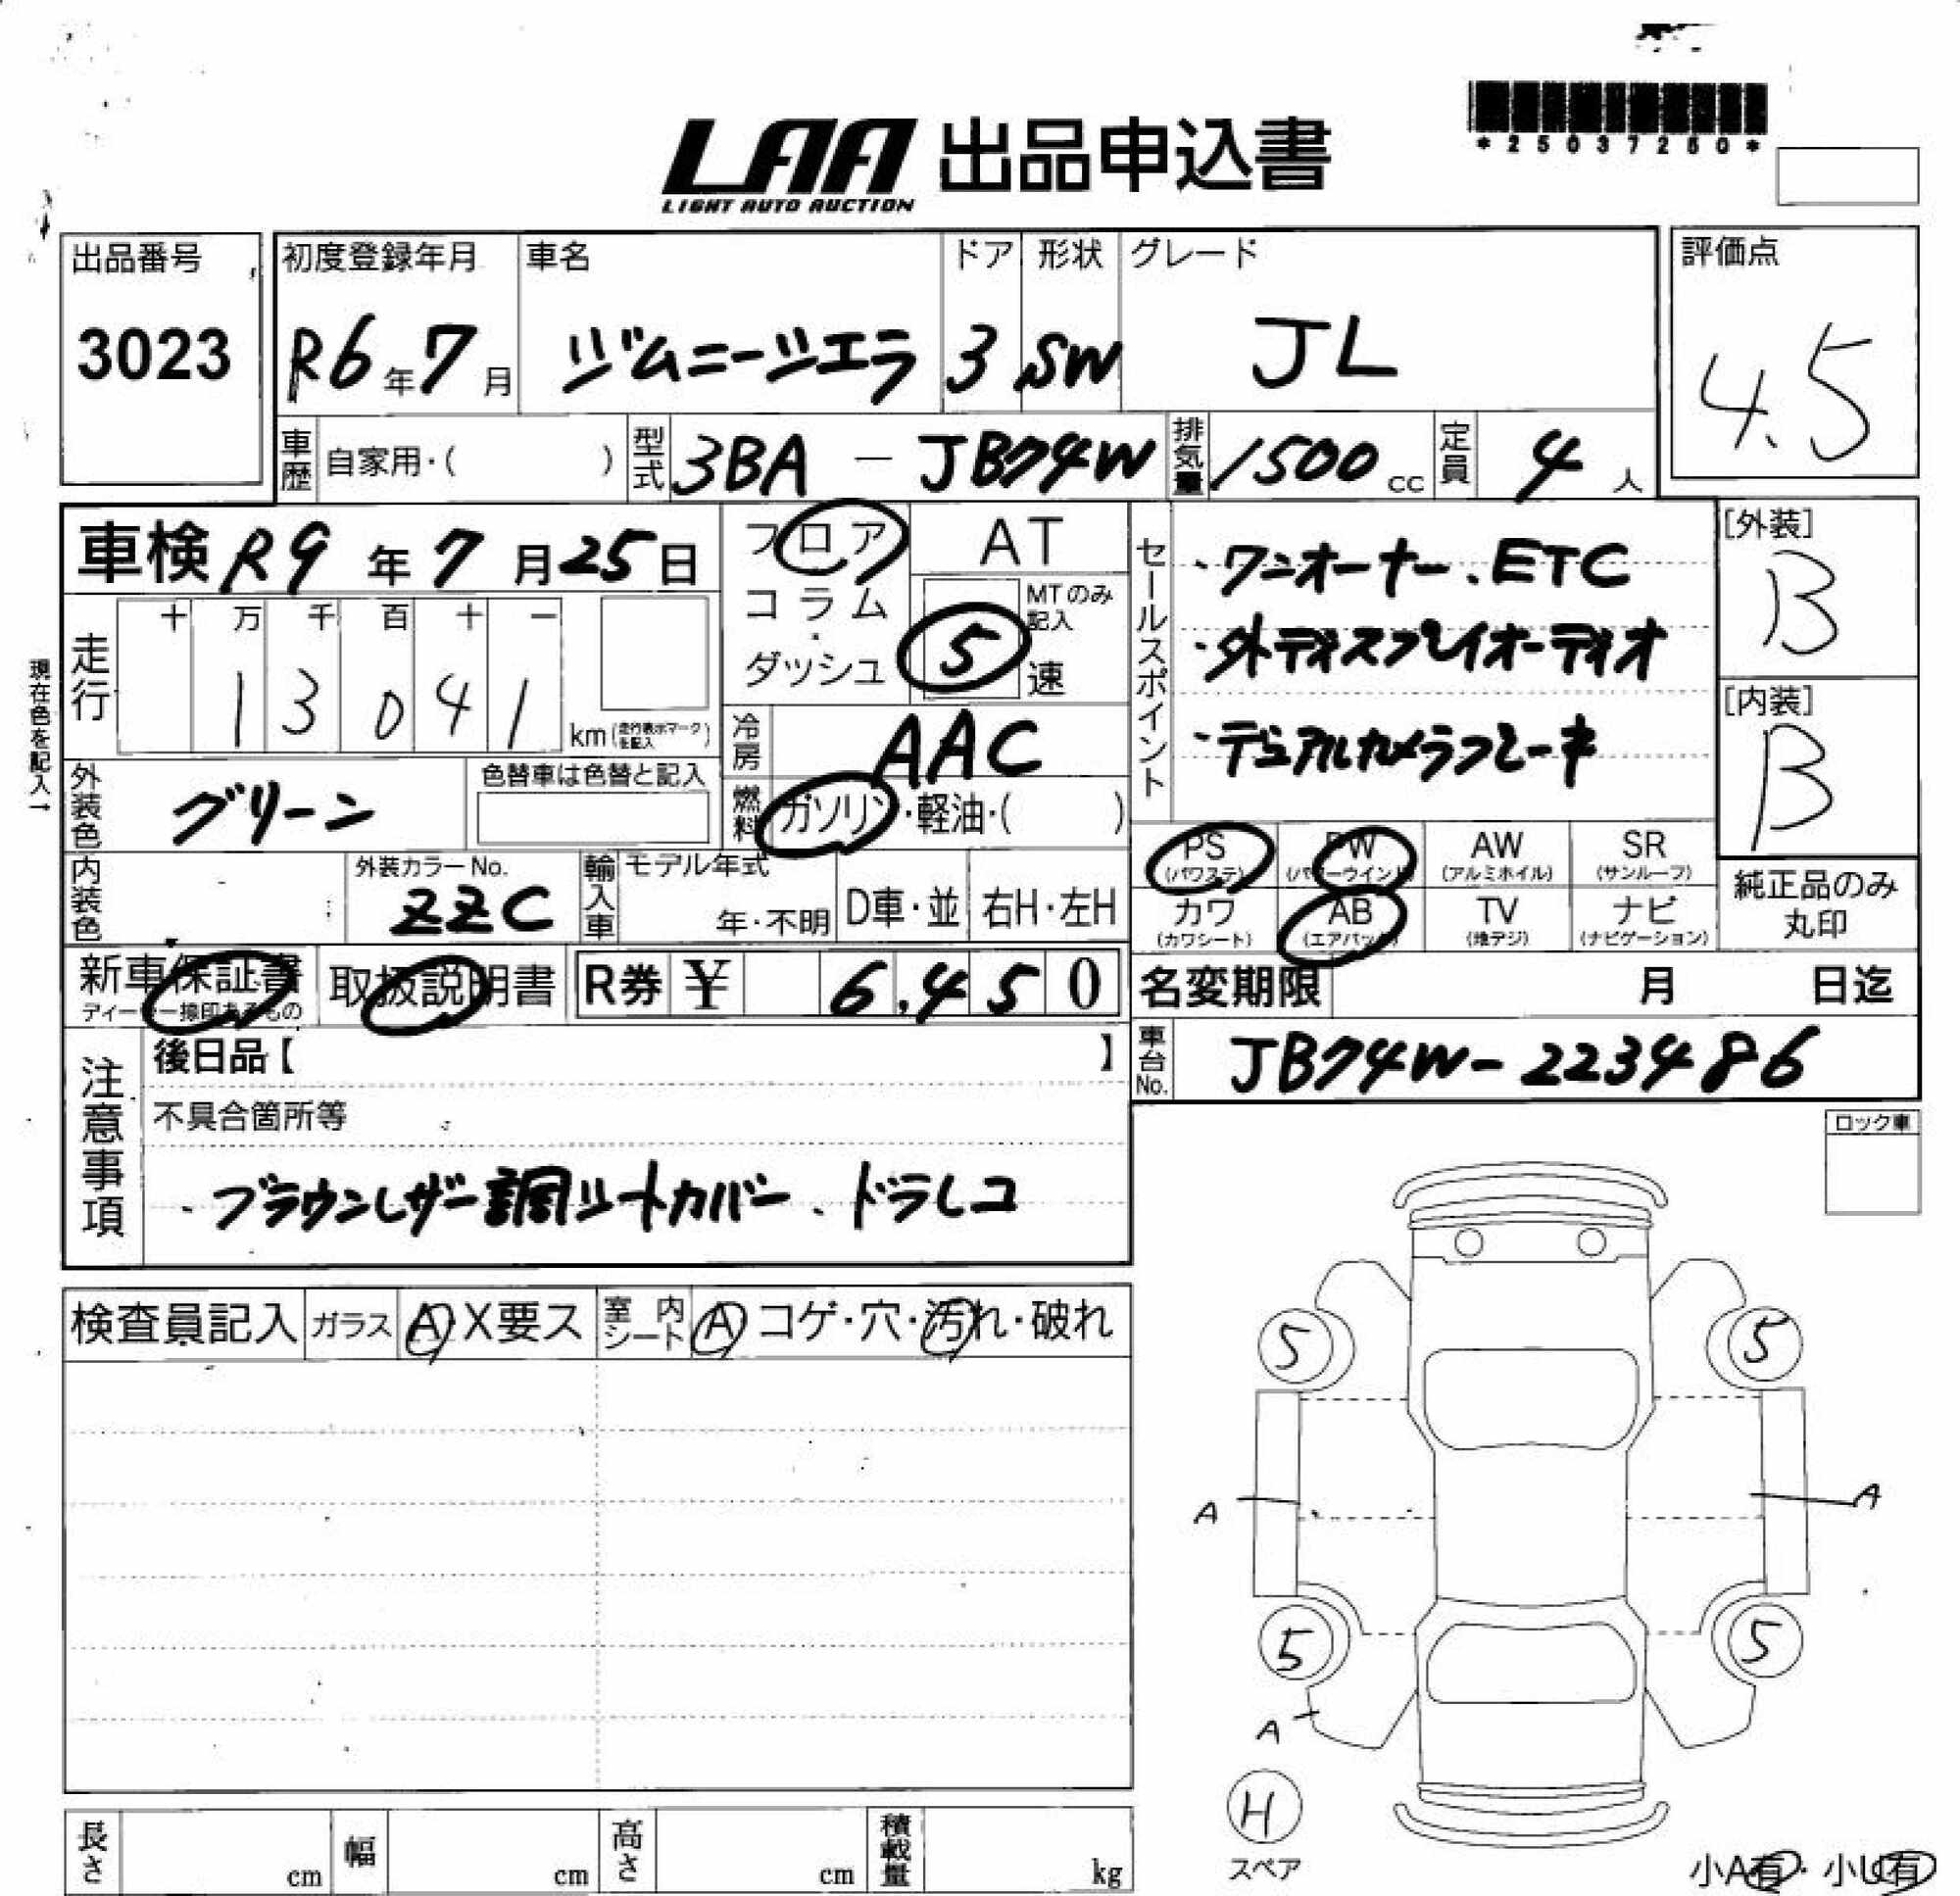 *25037250*
LAA 出品申込書
LIGHT AUTO AUCTION
出品番号
3023
初度登録年月
R6年7月
車名
ジムニーシエラ
ドア
3
形状
SW
グレード
JL
評価点
4.5
車歴 自家用・( )
型式 3BA - JB74W
排気量 1500cc
定員 4人
車検 R9年7月25日
フロア
コラム
ダッシュ
AT
MTのみ記入
5速
走行
十 万 千 百 十 一
1 3 0 4 1
km(走行表示マークを記入)
現在色を記入→
冷房 AAC
燃料 ガソリン・軽油・( )
セールスポイント
・ワンオーナー、ETC
・外ディスプレイオーディオ
・デュアルカメラブレーキ
[外装]
B
[内装]
B
外装色 グリーン
色替車は色替と記入
内装色
外装カラーNo.
ZZC
輸入車
モデル年式
年・不明
D車・並
右H・左H
PS (パワステ)
PW (パワーウインド)
AW (アルミホイル)
SR (サンルーフ)
カワ (カワシート)
AB (エアバック)
TV (地デジ)
ナビ (ナビゲーション)
純正品のみ
丸印
新車保証書
ディーラー捺印あるもの
取扱説明書
R券 ¥ 6,450
名変期限 月 日迄
車台No. JB74W-223486
注意事項
後日品【 】
不具合箇所等
・ブラウンレザー調シートカバー、ドラレコ
ロック車
検査員記入
ガラス A・X要ス
室内シート A コゲ・穴・汚れ・破れ
5 5
A A
5 5
A
H
スペア
長さ cm
幅 cm
高さ cm
積載量 kg
小A有・小U有